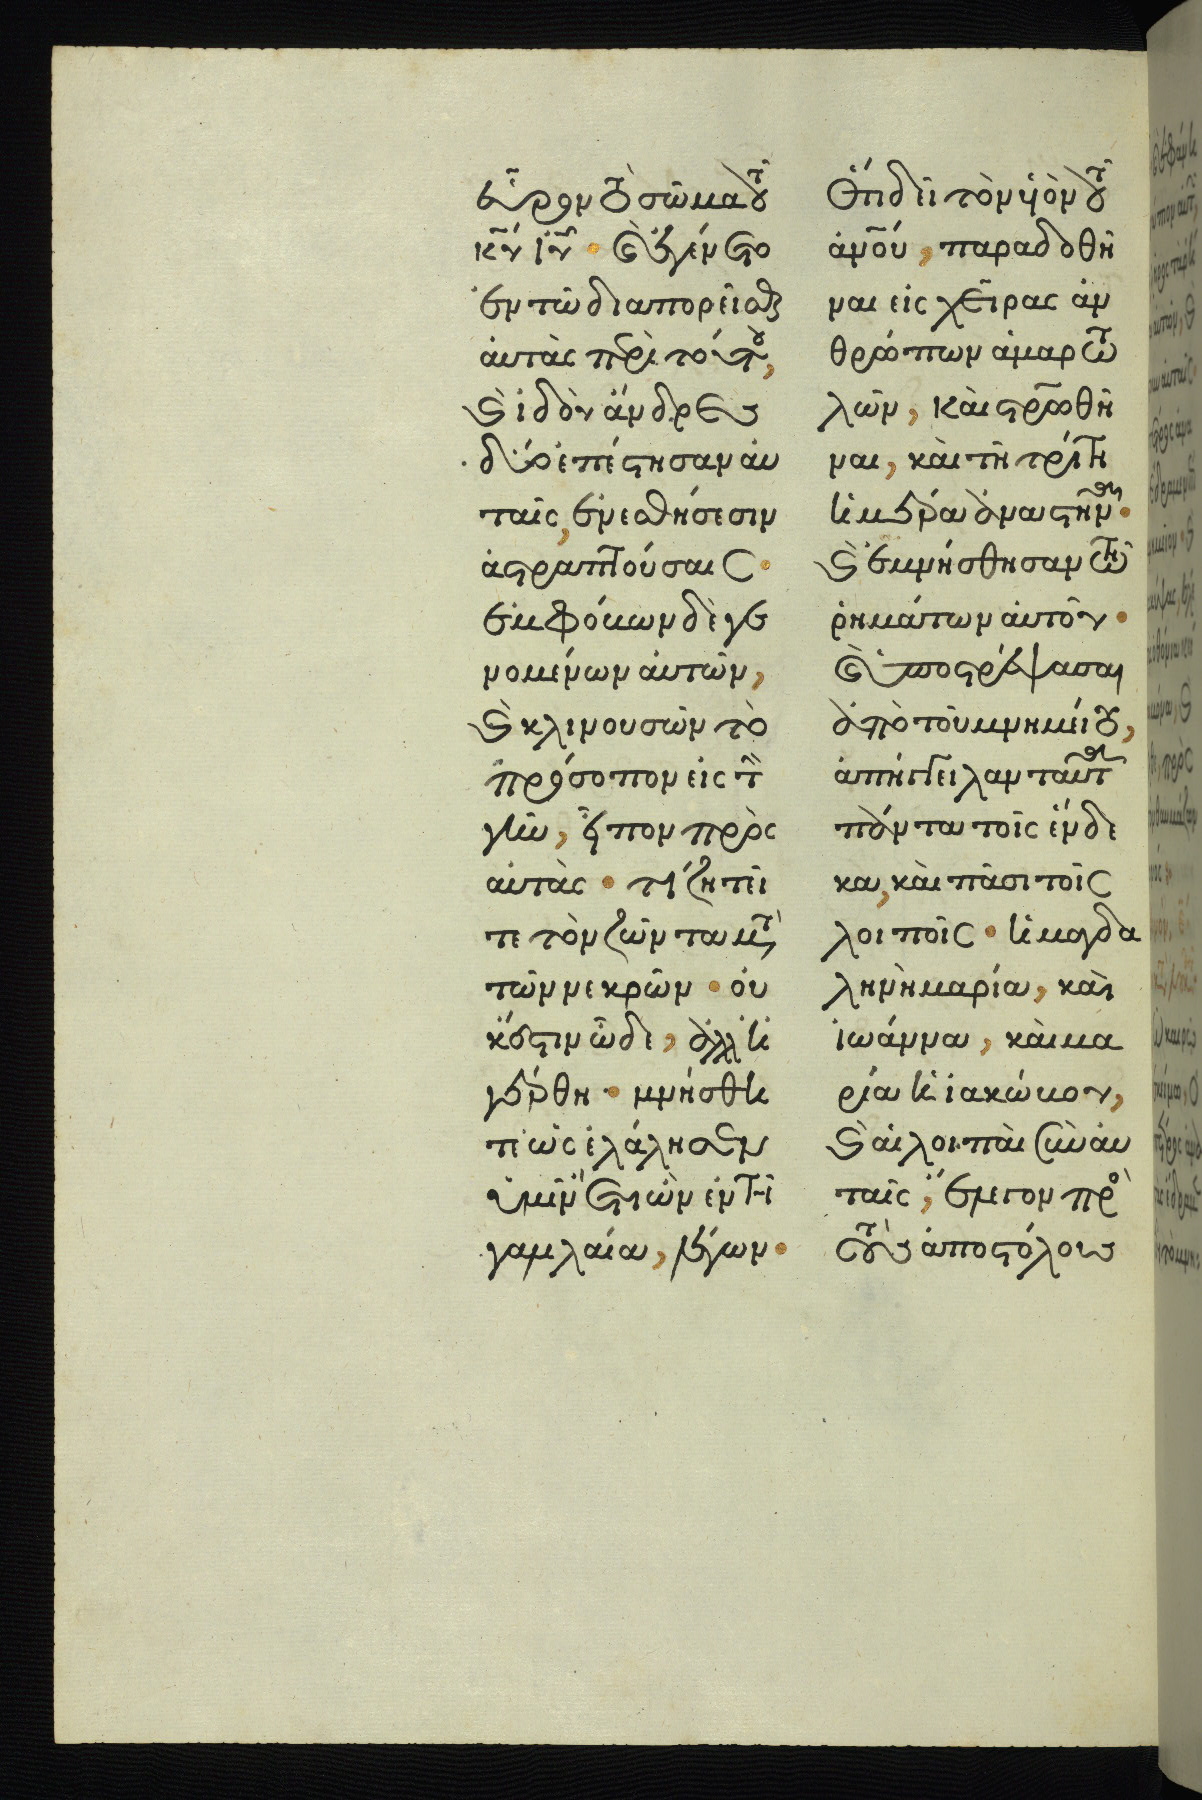 εὗρον τὸ σῶμα τοῦ
κ̅υ̅ ι̅υ̅ · καὶ ἐγένετο
ἐν τῶ διαπορεῖσθαι
αὐτὰς περὶ τούτου,
καὶ ἰδοὺ ἄνδρες
δύο ἐπέστησαν αὐ
ταῖς, ἐν ἐσθήσεσιν
ἀστραπτούσαις ·
ἐμφόβων δὲ γε
νομένων αὐτῶν,
καὶ κλινουσῶν τὸ
πρόσωπον εἰς τὴν
γῆν, εἶπον πρὸς
αὐτὰς · τί ζητεῖ
τε τὸν ζῶντα μετὰ
τῶν νεκρῶν · οὐ
κ ἔστιν ὧδε, ἀλλ ἠ
γέρθη · μνήσθη
τε ὡς ἐλάλησεν
ὑμῖν ἔτι ὢν ἐν τῆ
γαλιλαία, λέγων ·
ὅτι δεῖ τὸν υἱὸν τοῦ
ἀν̅ου, παραδοθῆ
ναι εἰς χεῖρας ἀν
θρώπων ἁμαρτω
λῶν, καὶ στ̅ρωθῆ
ναι, καὶ τῆ τρίτη
ἡμέρα ἀναστῆναι ·
καὶ ἐμνήσθησαν τῶν
ῥημάτων αὐτοῦ ·
καὶ ὑποστρέψασαι
ἀπὸ τοῦ μνημείου,
ἀπήγγειλαν ταῦτα
πάντα τοῖς ἕνδε
κα, καὶ πᾶσι τοῖς
λοιποῖς · ἡ μαγδα
ληνὴ μαρία, καὶ
ἰωάννα, καὶ μα
ρία ἡ ἰακώβου,
καὶ αἱ λοιπαὶ σὺν αὐ
ταῖς, ἔλεγον πρὸς
τοὺς ἀποστόλους